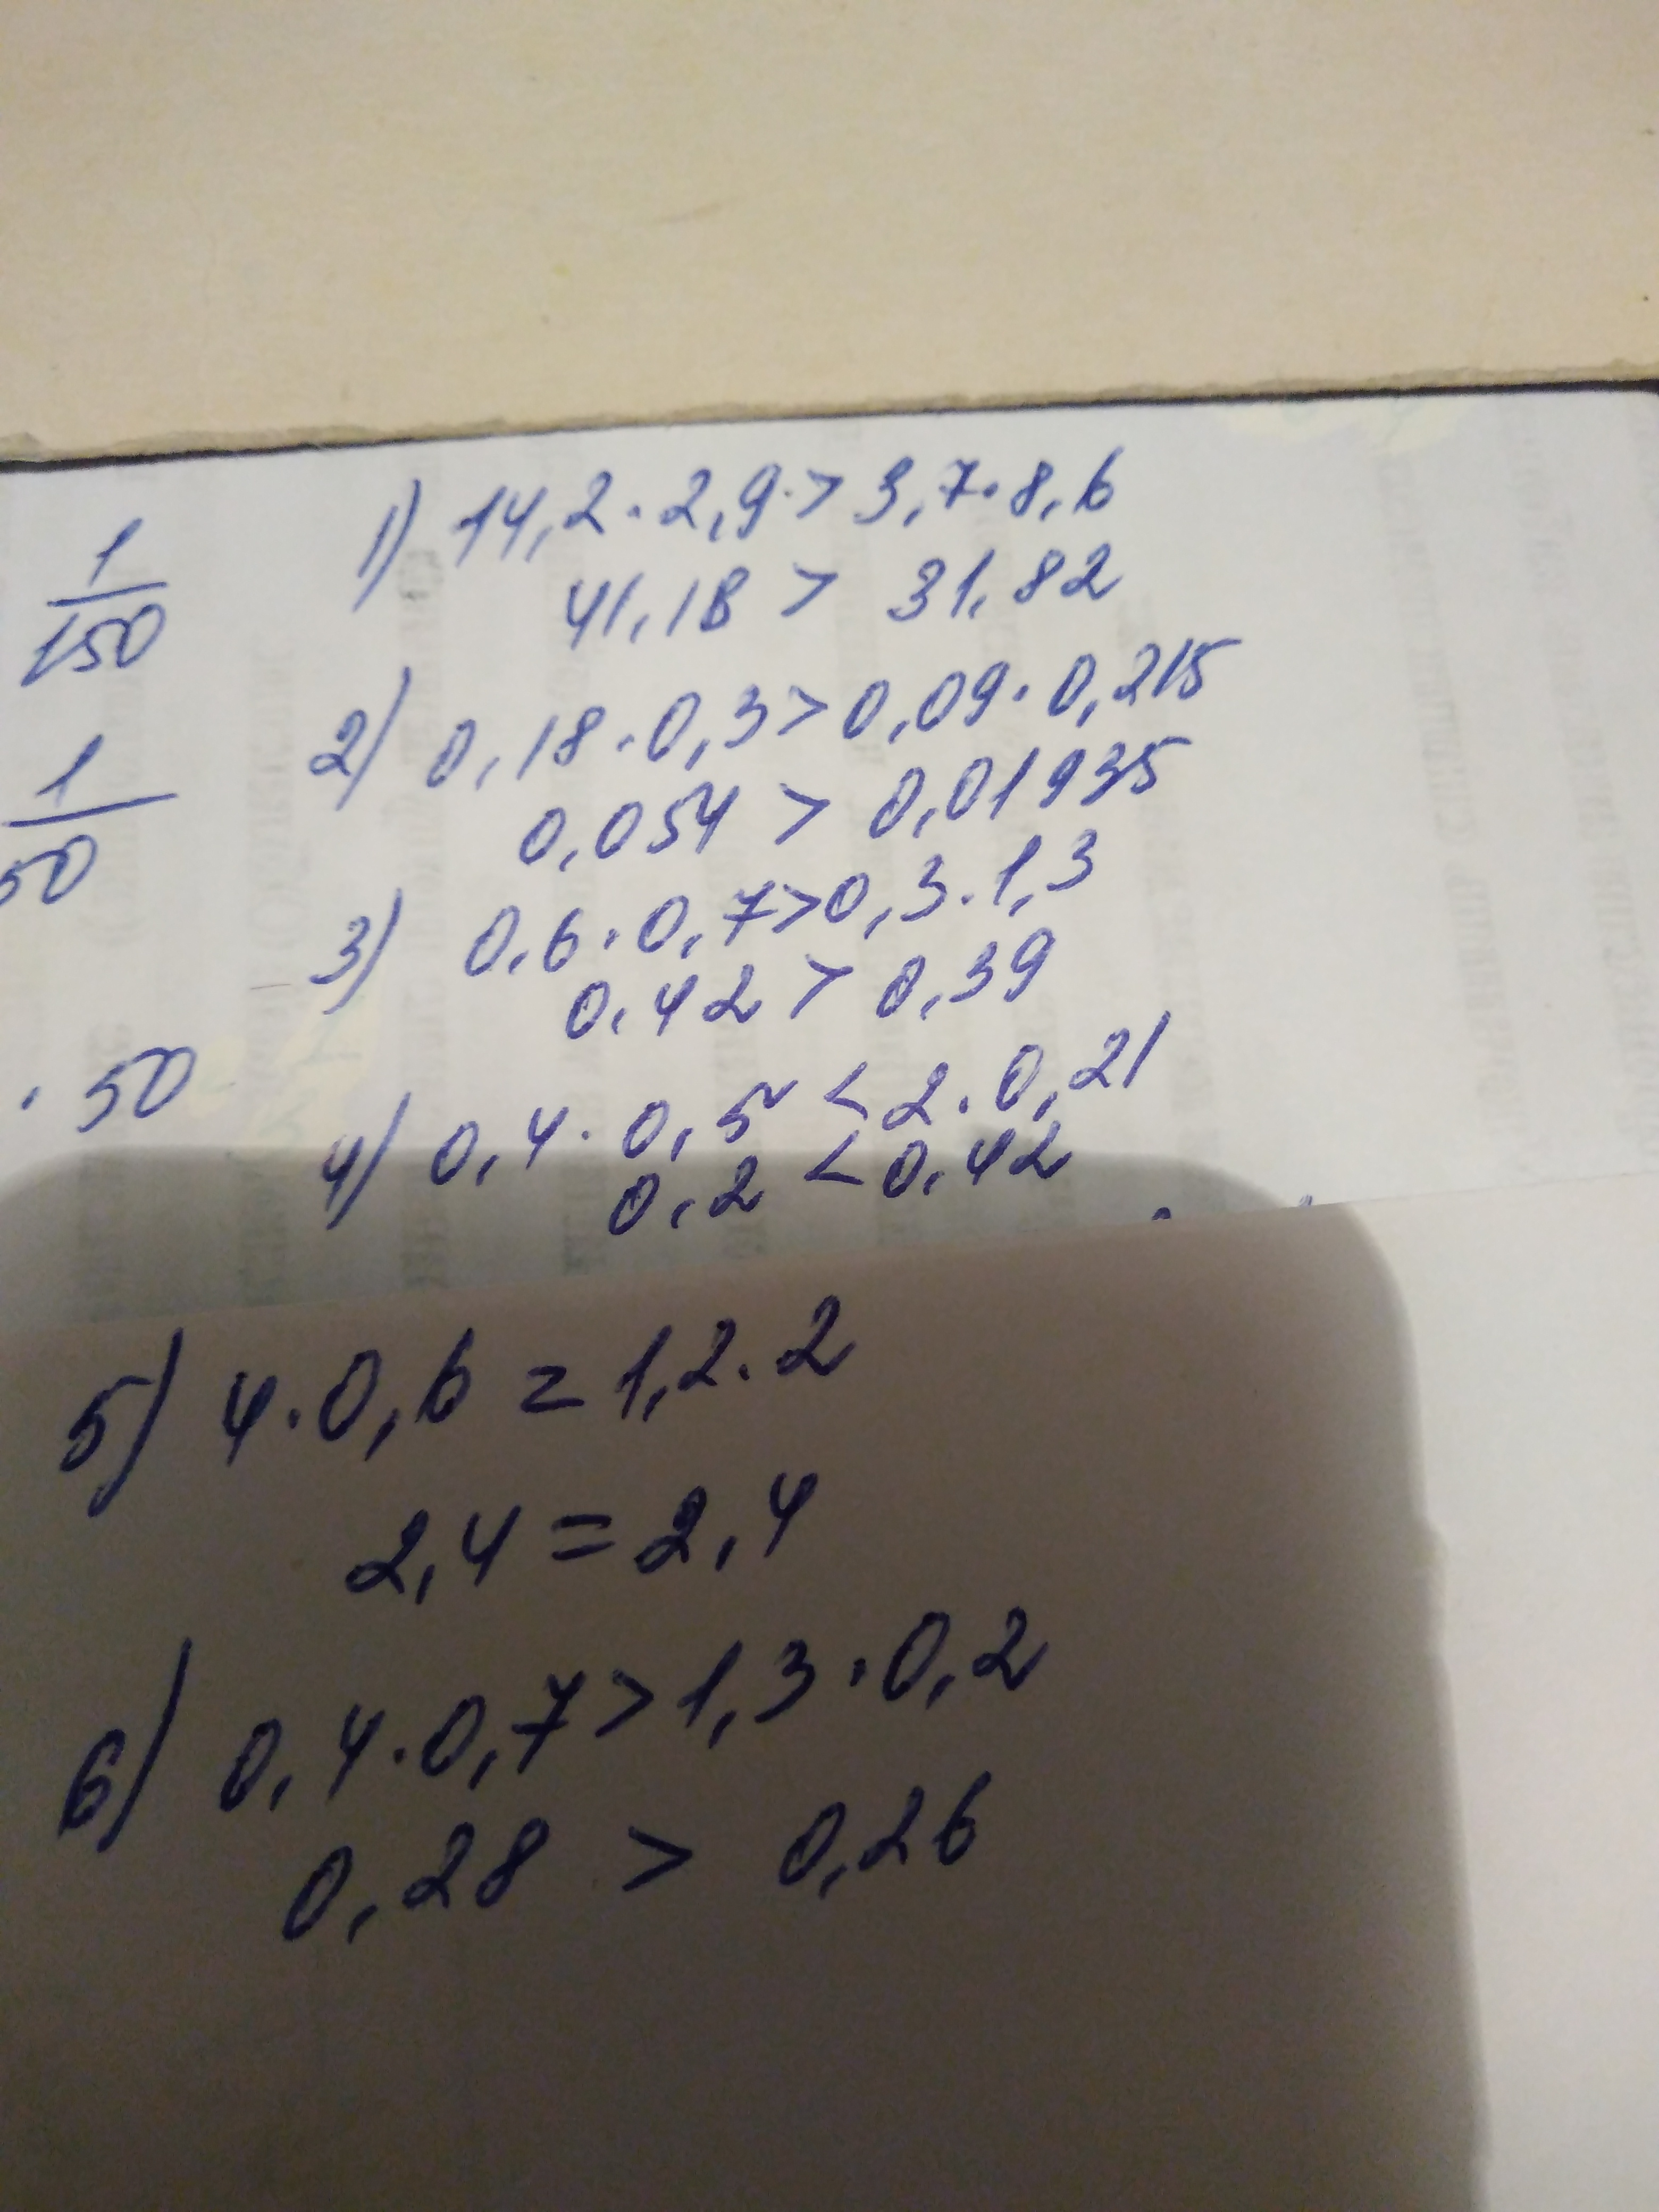 1) 14,2·2,9>3,7·8,6
41,18 > 31,82
2) 0,18·0,3>0,09·0,215
0,054 > 0,01935
3) 0,6·0,7>0,3·1,3
0,42 > 0,39
4) 0,4·0,5<2·0,21
0,2<0,42
5) 4·0,6=1,2·2
2,4=2,4
6) 0,4·0,7>1,3·0,2
0,28 > 0,26
1
150
1
50
· 50